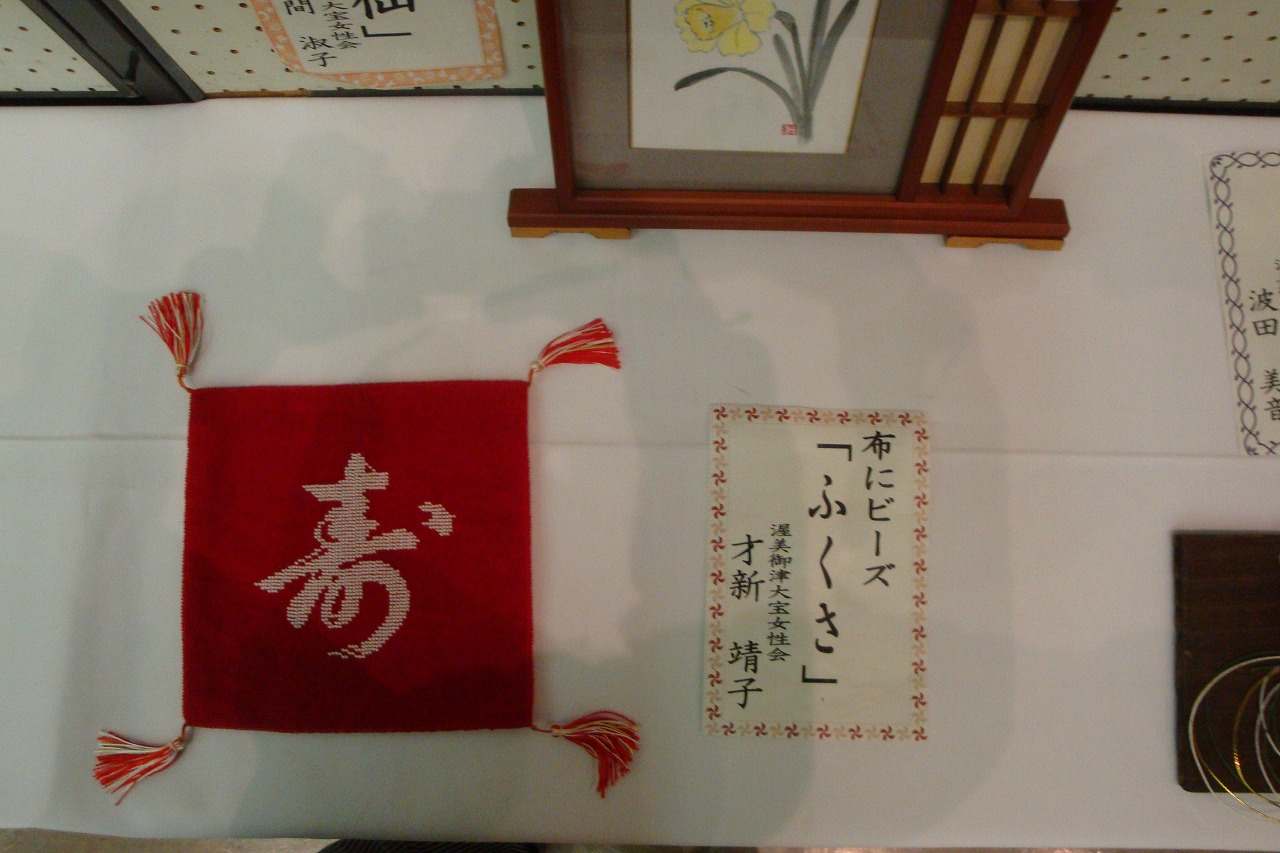 仙」
大宝女性会
間 淑子
寿
布にビーズ
「ふくさ」
渥美御津大宝女性会
才新 靖子
波田 美音